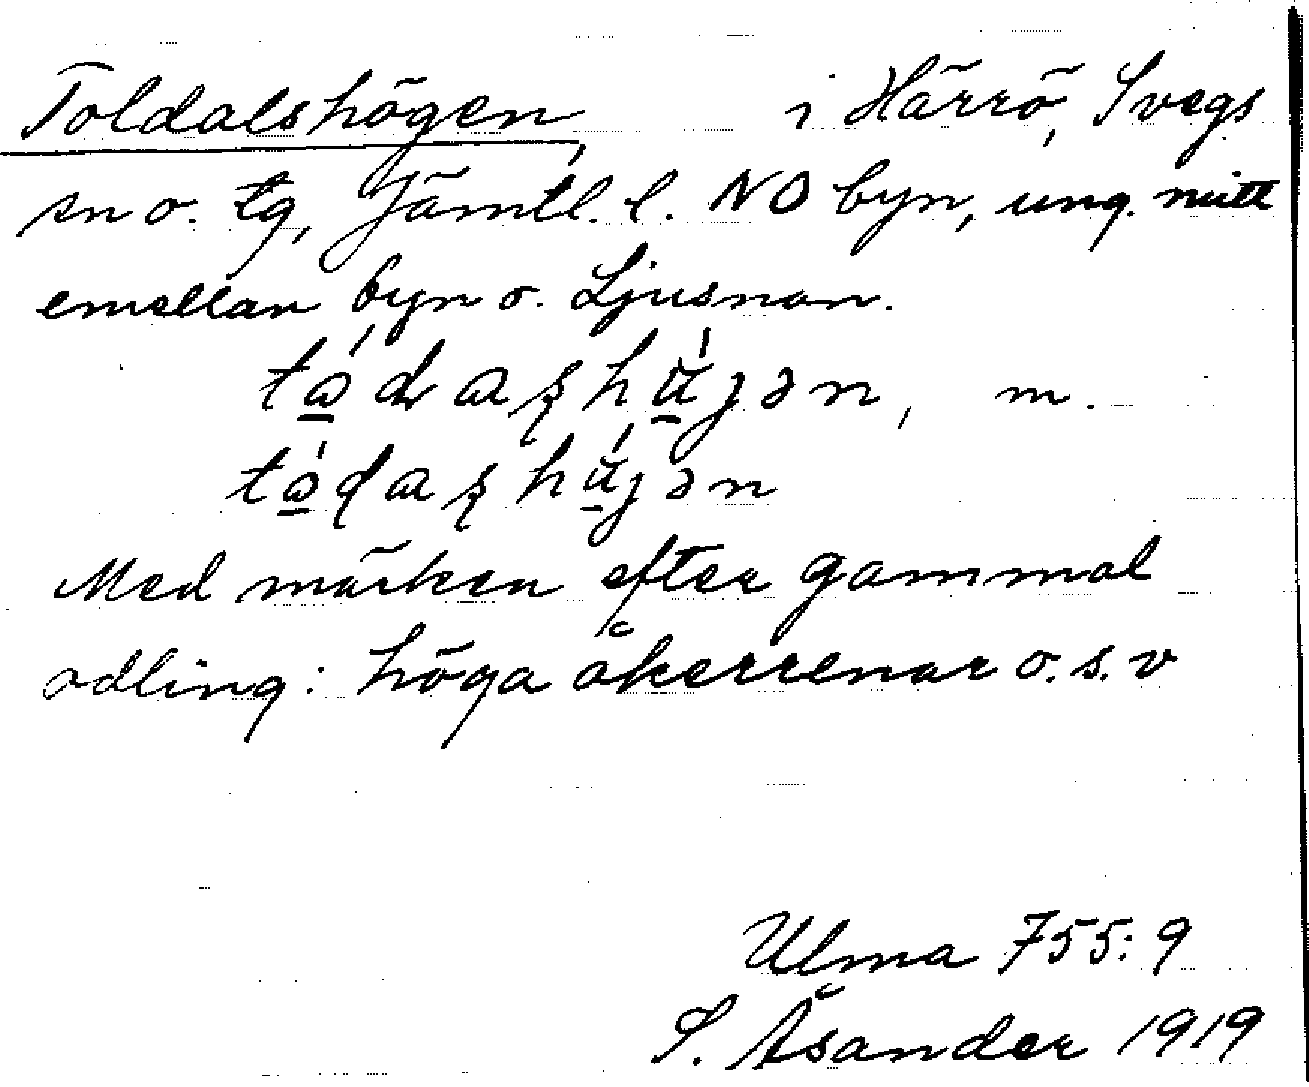 Toldalshögen, i Härrö, Svegs
sn o. tg, Jämtl. l. NO byn, ung. mitt
emellan byn o. Ljusnan.
m.
Med märken efter gammal
odling: höga åkerrenar o.s.v
Ulma 755:9
S. Åsander 1919